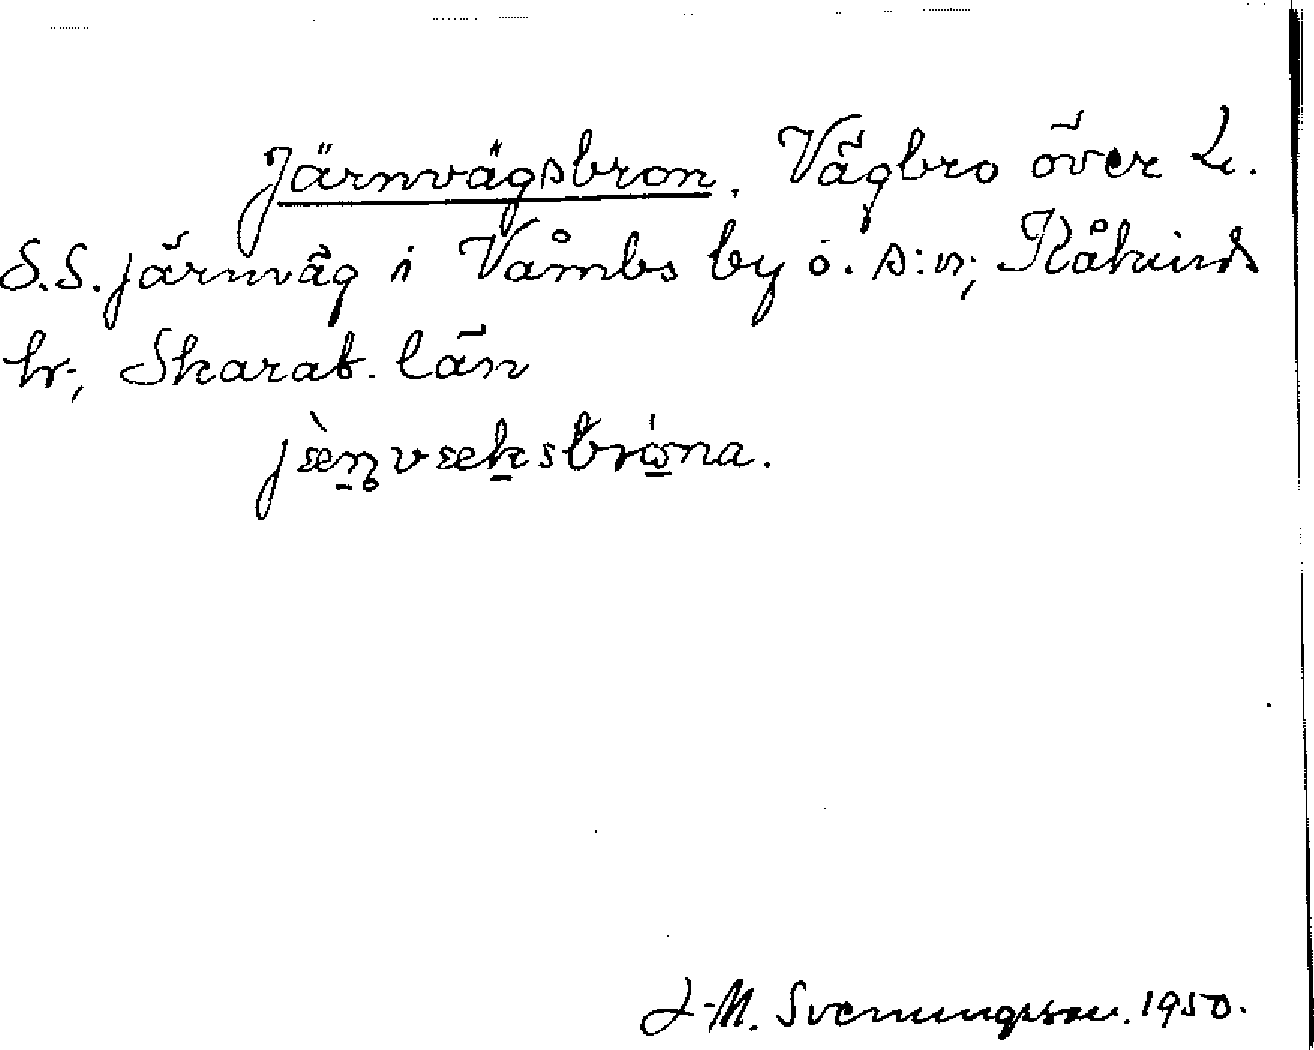 Järnvägsbron. Vägbro över L.
S.S. järnväg i Våmbs by o. s:n, Kåkinds
hr, Skarab. län
jæ̀n̥væksbrω̇na.
J-M. Svenungsson. 1950.